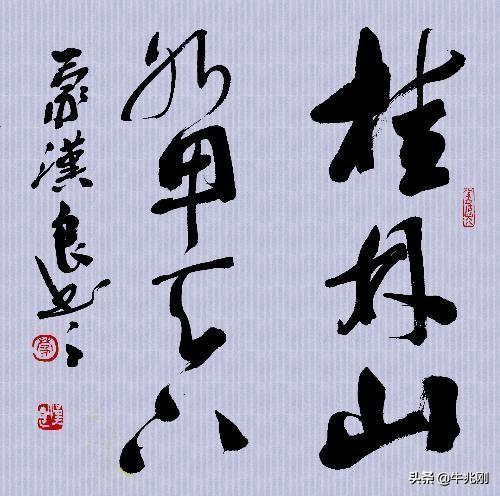 桂林山
水甲天下
蒙漢良书
头条 @牛兆刚